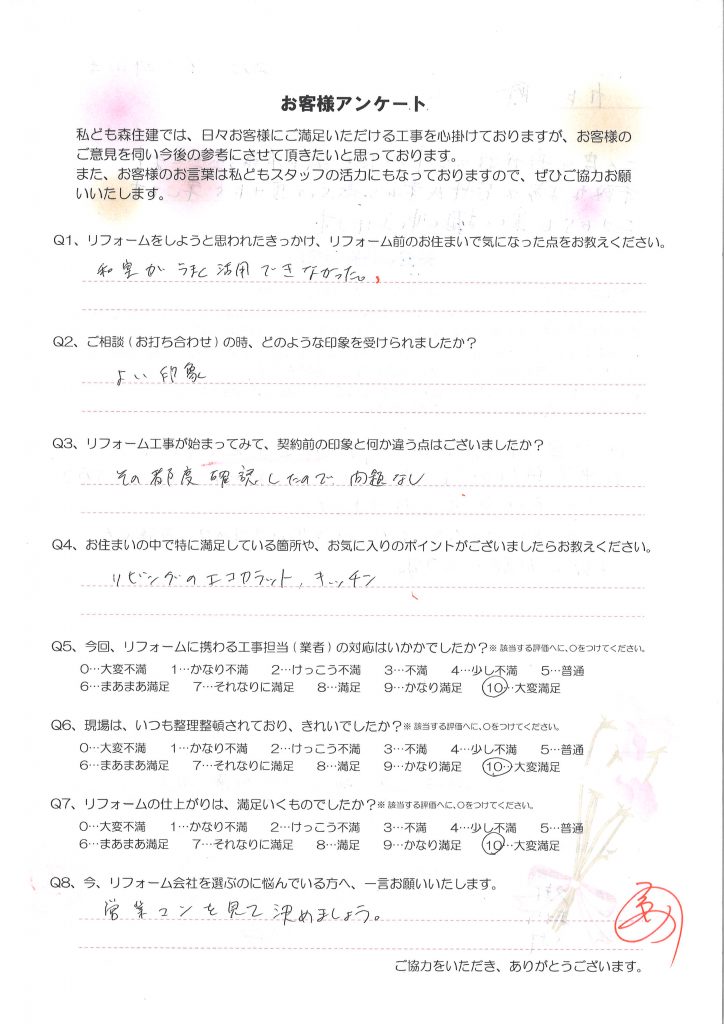 お客様アンケート
私ども森住建では、日々お客様にご満足いただける工事を心掛けておりますが、お客様の
ご意見を伺い今後の参考にさせて頂きたいと思っております。
また、お客様のお言葉は私どもスタッフの活力にもなっておりますので、ぜひご協力お願
いいたします。
Q1、リフォームをしようと思われたきっかけ、リフォーム前のお住まいで気になった点をお教えください。
和室がうまく活用できなかった。
Q2、ご相談(お打ち合わせ)の時、どのような印象を受けられましたか?
よい印象
Q3、リフォーム工事が始まってみて、契約前の印象と何か違う点はございましたか?
その都度確認したので問題なし
Q4、お住まいの中で特に満足している箇所や、お気に入りのポイントがございましたらお教えください。
リビングのエコカラット,キッチン
Q5、今回、リフォームに携わる工事担当(業者)の対応はいかかでしたか?※該当する評価へに、○をつけてください。
0…大変不満 1…かなり不満 2…けっこう不満 3…不満 4…少し不満 5…普通
6…まあまあ満足 7…それなりに満足 8…満足 9…かなり満足 10…大変満足
Q6、現場は、いつも整理整頓されており、きれいでしたか?※該当する評価へに、○をつけてください。
0…大変不満 1…かなり不満 2…けっこう不満 3…不満 4…少し不満 5…普通
6…まあまあ満足 7…それなりに満足 8…満足 9…かなり満足 10…大変満足
Q7、リフォームの仕上がりは、満足いくものでしたか?※該当する評価へに、○をつけてください。
0…大変不満 1…かなり不満 2…けっこう不満 3…不満 4…少し不満 5…普通
6…まあまあ満足 7…それなりに満足 8…満足 9…かなり満足 10…大変満足
Q8、今、リフォーム会社を選ぶのに悩んでいる方へ、一言お願いいたします。
営業マンを見て決めましょう。
ご協力をいただき、ありがとうございます。